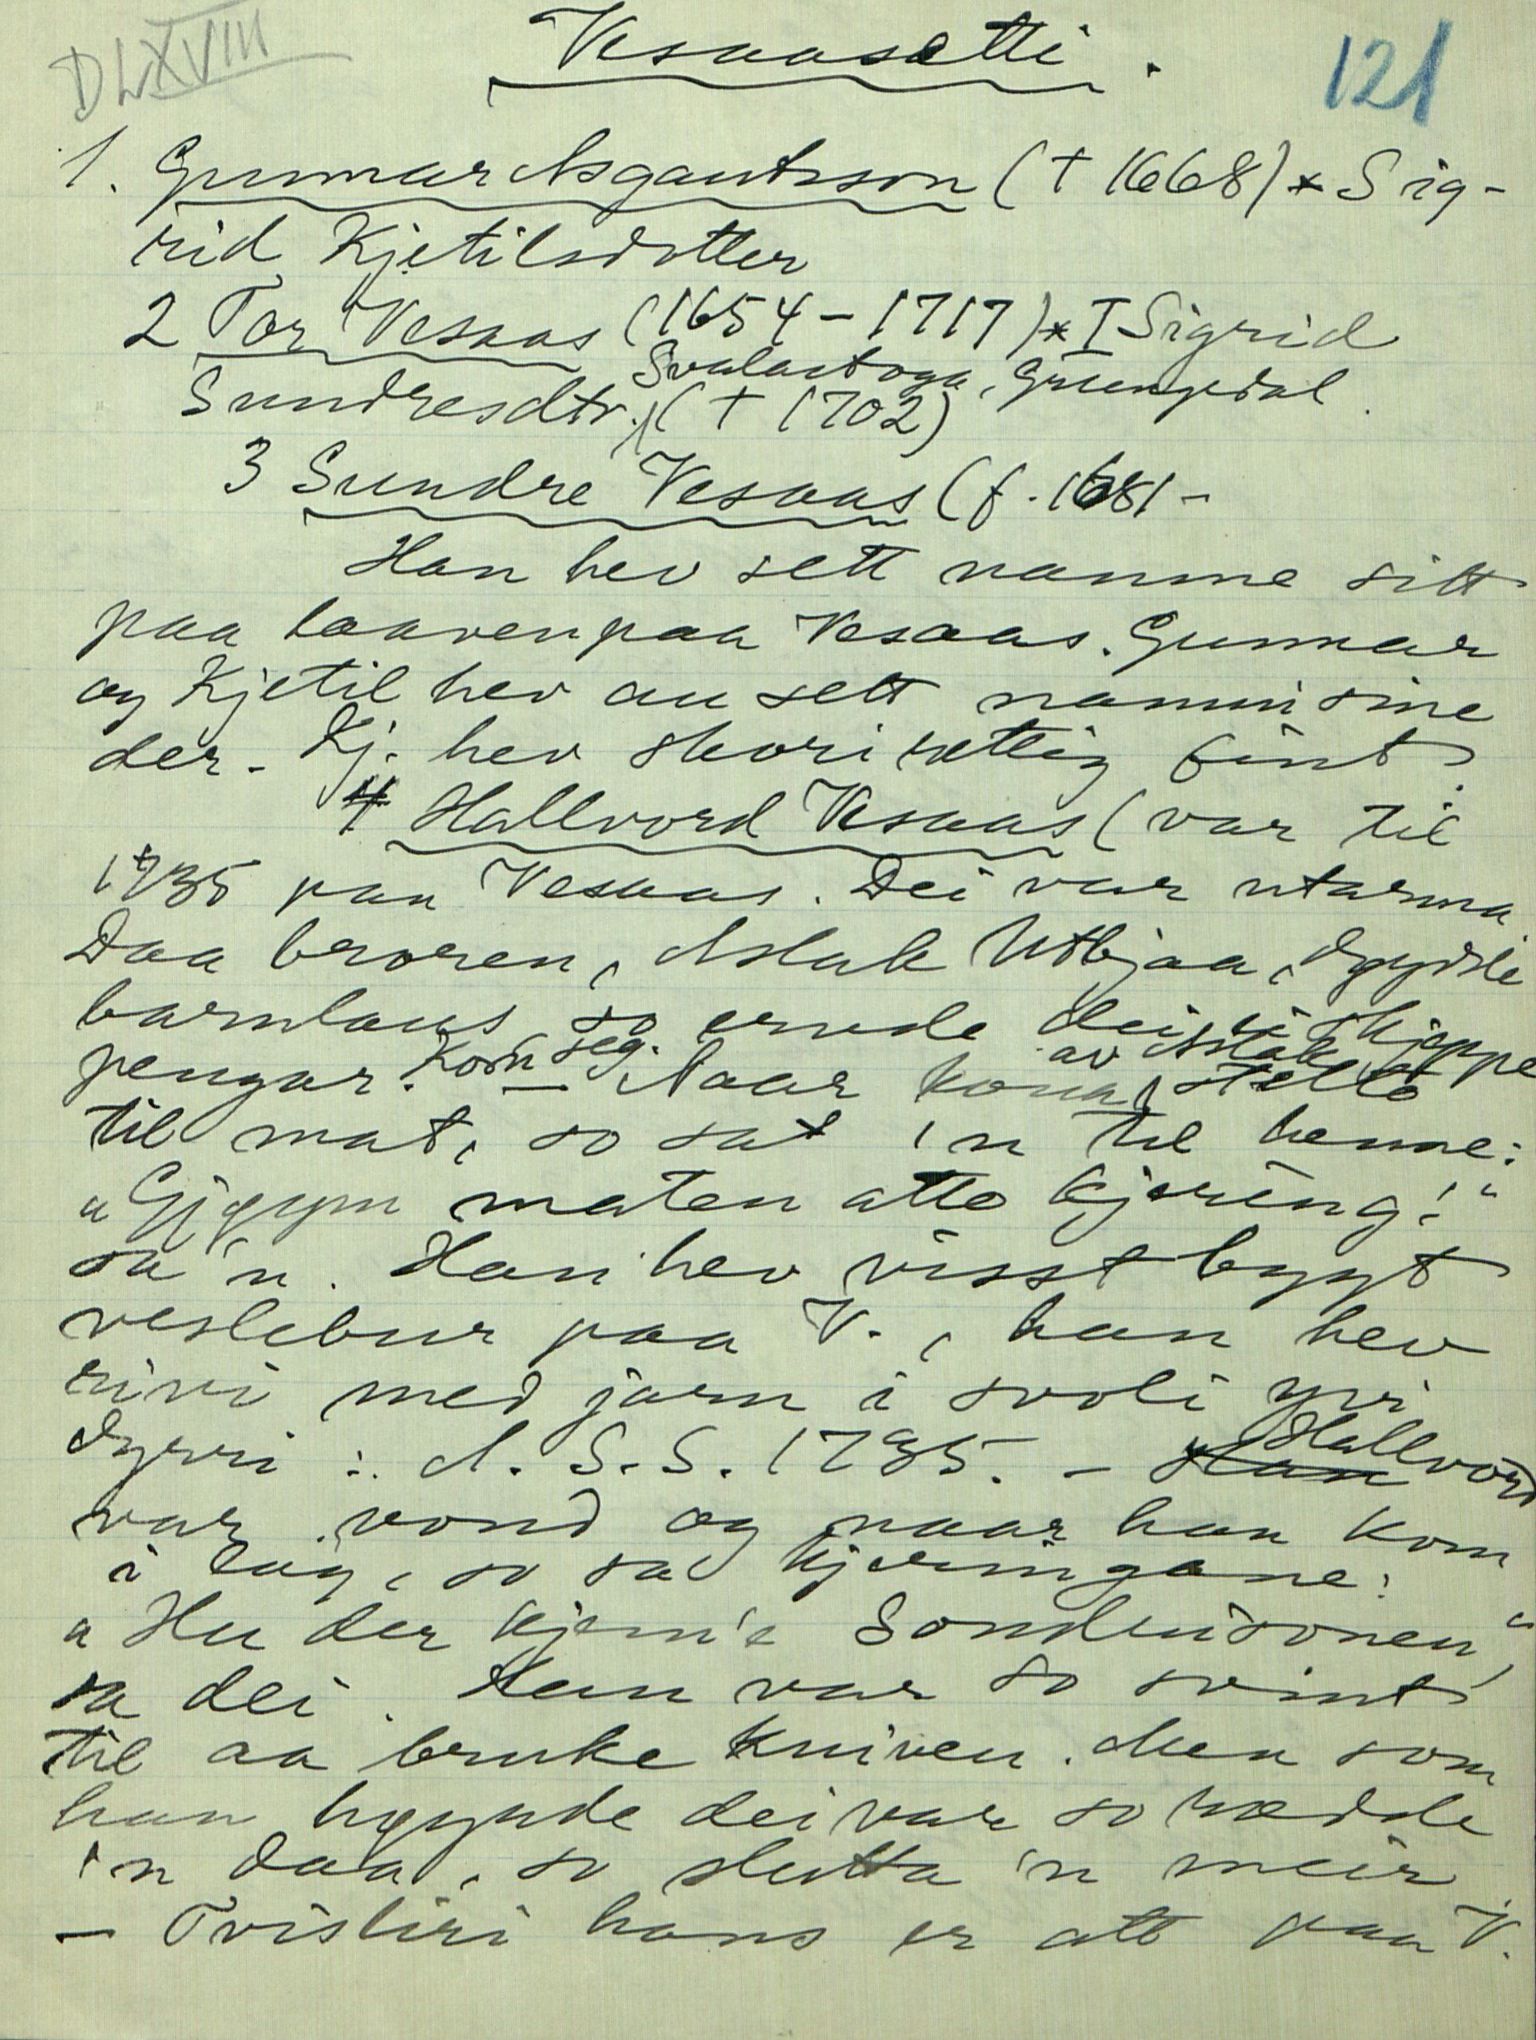 DLXVIII
Vesaasætti.
121
1. Gunnar Asgautsson († 1668) * Sig-
rid Kjetilsdotter
2 Tor Vesaas (1654-1717) * I Sigrid
Svalastoga, Grungedal.
Sundresdtr. († 1702)
3 Sundre Vesaas (f. 1681-
Han hev sett namne sitt
paa laaven paa Vesaas. Gunnar
og Kjetil hev au sett namni sine
der. Kj. hev skori rettig fint.
4 Hallvord Vesaas (var til
1735 paa Vesaas. Dei var utarma
Daa broren, Aslak Utbjaa, døydde
barnlaus, so ervde dei i skjeppe
pengar. Kom seg. - Naar kona av Aslak stellte
til mat, so sat 'n til henne:
"Gjøym maten atte kjering!"
sa 'n. Han hev visst bygt
veslebur paa V., han hev
rivi med jarn i svoli yvi
dyrri: A. S. S. 1735. - Hallvord
var vond og naar han kom
i lag, so sa kjeringane:
"Hu der kjem 'e Sondrisonen",
sa dei. Han var so svint
til aa bruke kniven. Men som
han høyrde dei var so rædde
'n daa, so slutta 'n meir
- Tvisliri hans er att paa V.